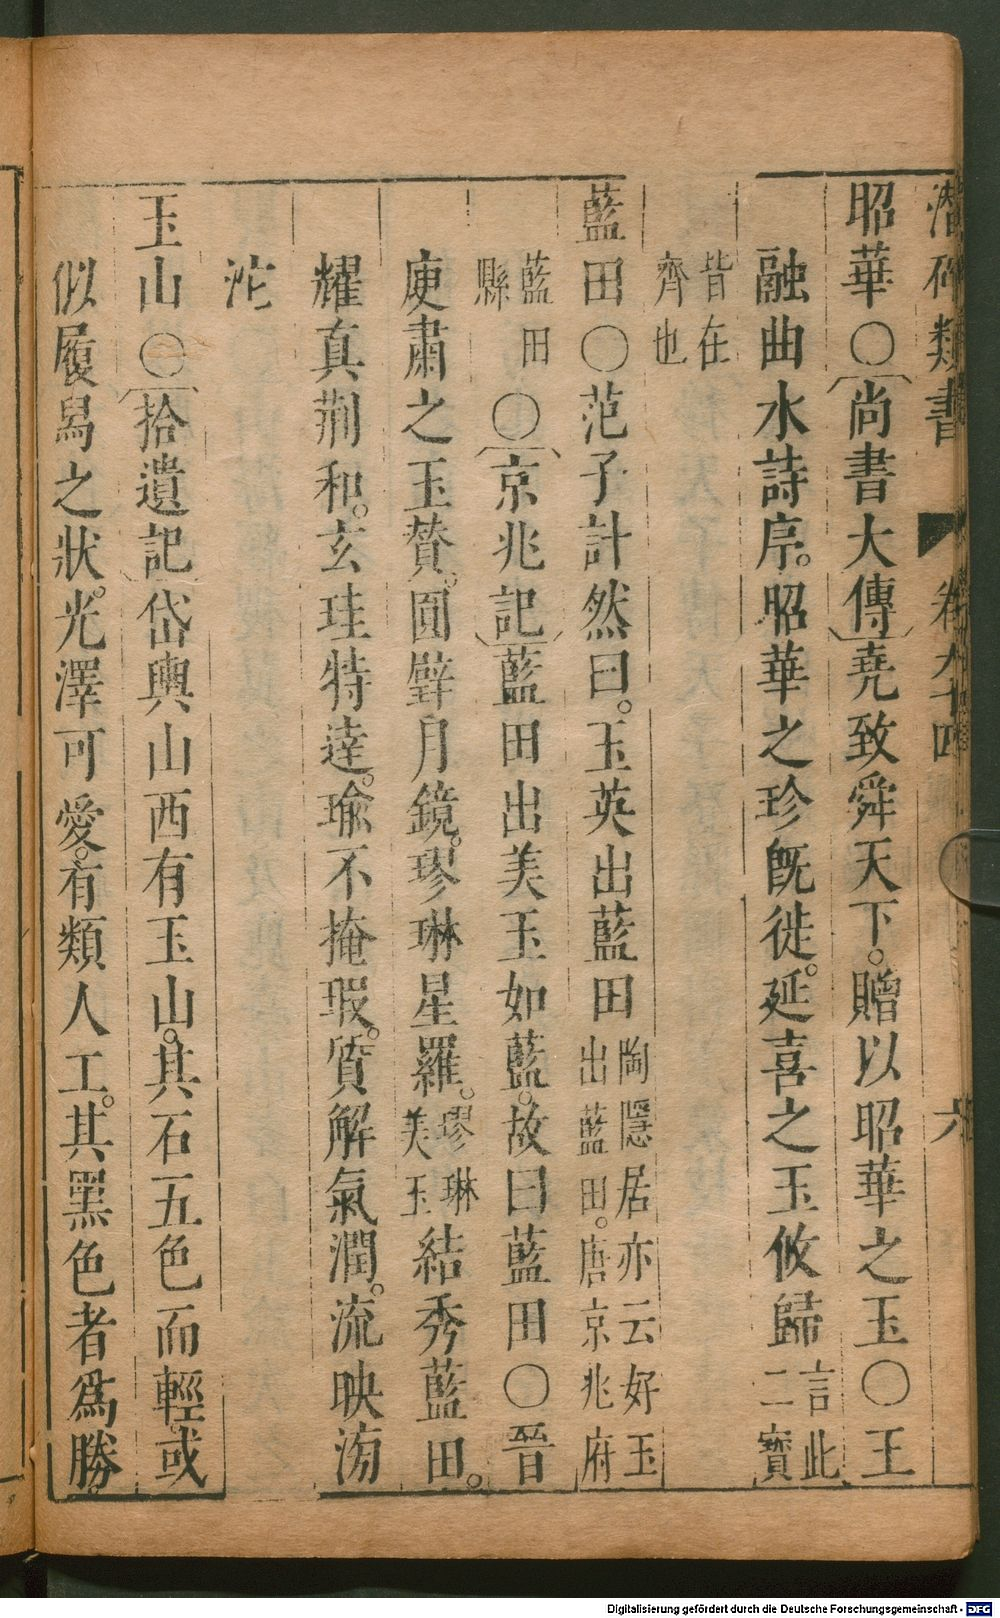 潛確類書 卷九十四 六
昭華〇尚書大傳堯致舜天下。贈以昭華之玉〇王
融曲水詩序。昭華之珍旣徙。延喜之玉攸歸言此二寶
皆在齊也
藍田〇范子計然曰。玉英出藍田陶隱居亦云好玉出藍田。唐京兆府
藍田縣〇京兆記藍田出美玉如藍。故曰藍田〇晉
庾肅之玉贊。圓璧月鏡。璆琳星羅。璆琳美玉結秀藍田。
耀真荆和。玄珪特達。瑜不掩瑕。質解氣潤。流映滂
沱
玉山〇拾遺記岱輿山西有玉山。其石五色而輕。或
似履舄之狀。光澤可愛。有類人工。其黑色者爲勝。
Digitalisierung gefördert durch die Deutsche Forschungsgemeinschaft - DFG